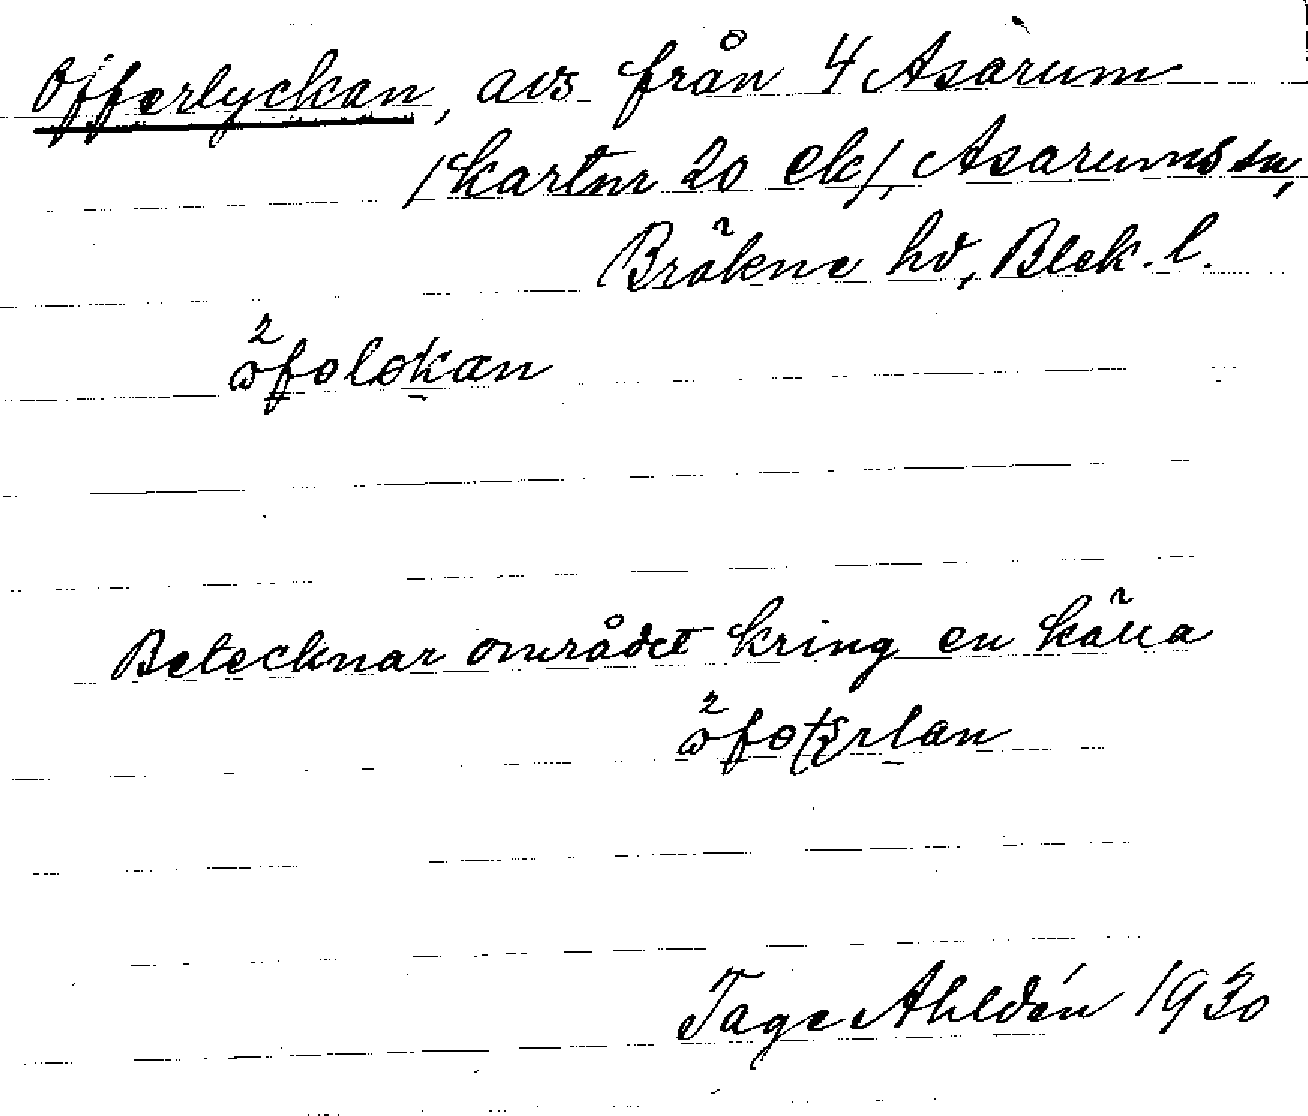 Offerlyckan, avs från 4 Asarum
/kartnr 20 ek/, Asarums sn,
Bräkne hd, Blek. l.
Betecknar området kring en källa
Tage Ahldén 1930